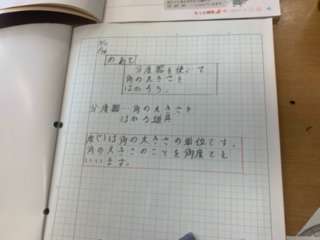 めあて
分度器を使って
角の大きさを
はかろう。
分度器…角の大きさを
はかる道具
度(°)は角の大きさの単位です。
角の大きさのことを角度とも
いいます。